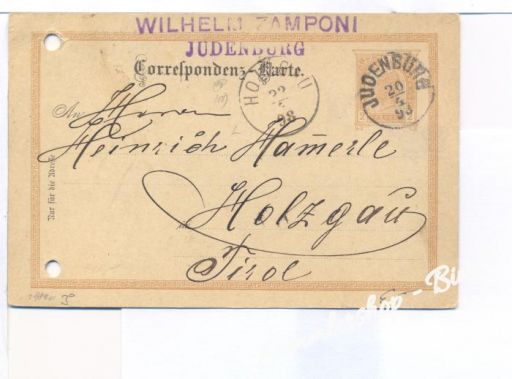 WILHELM ZAMPONI
JUDENBURG
Correspondenz-Karte.
JUDENBURG
20
98
HOLZGAU
22
98
An Herrn
Heinrich Hammerle
Nur für die Adresse
in Holzgau
Tirol